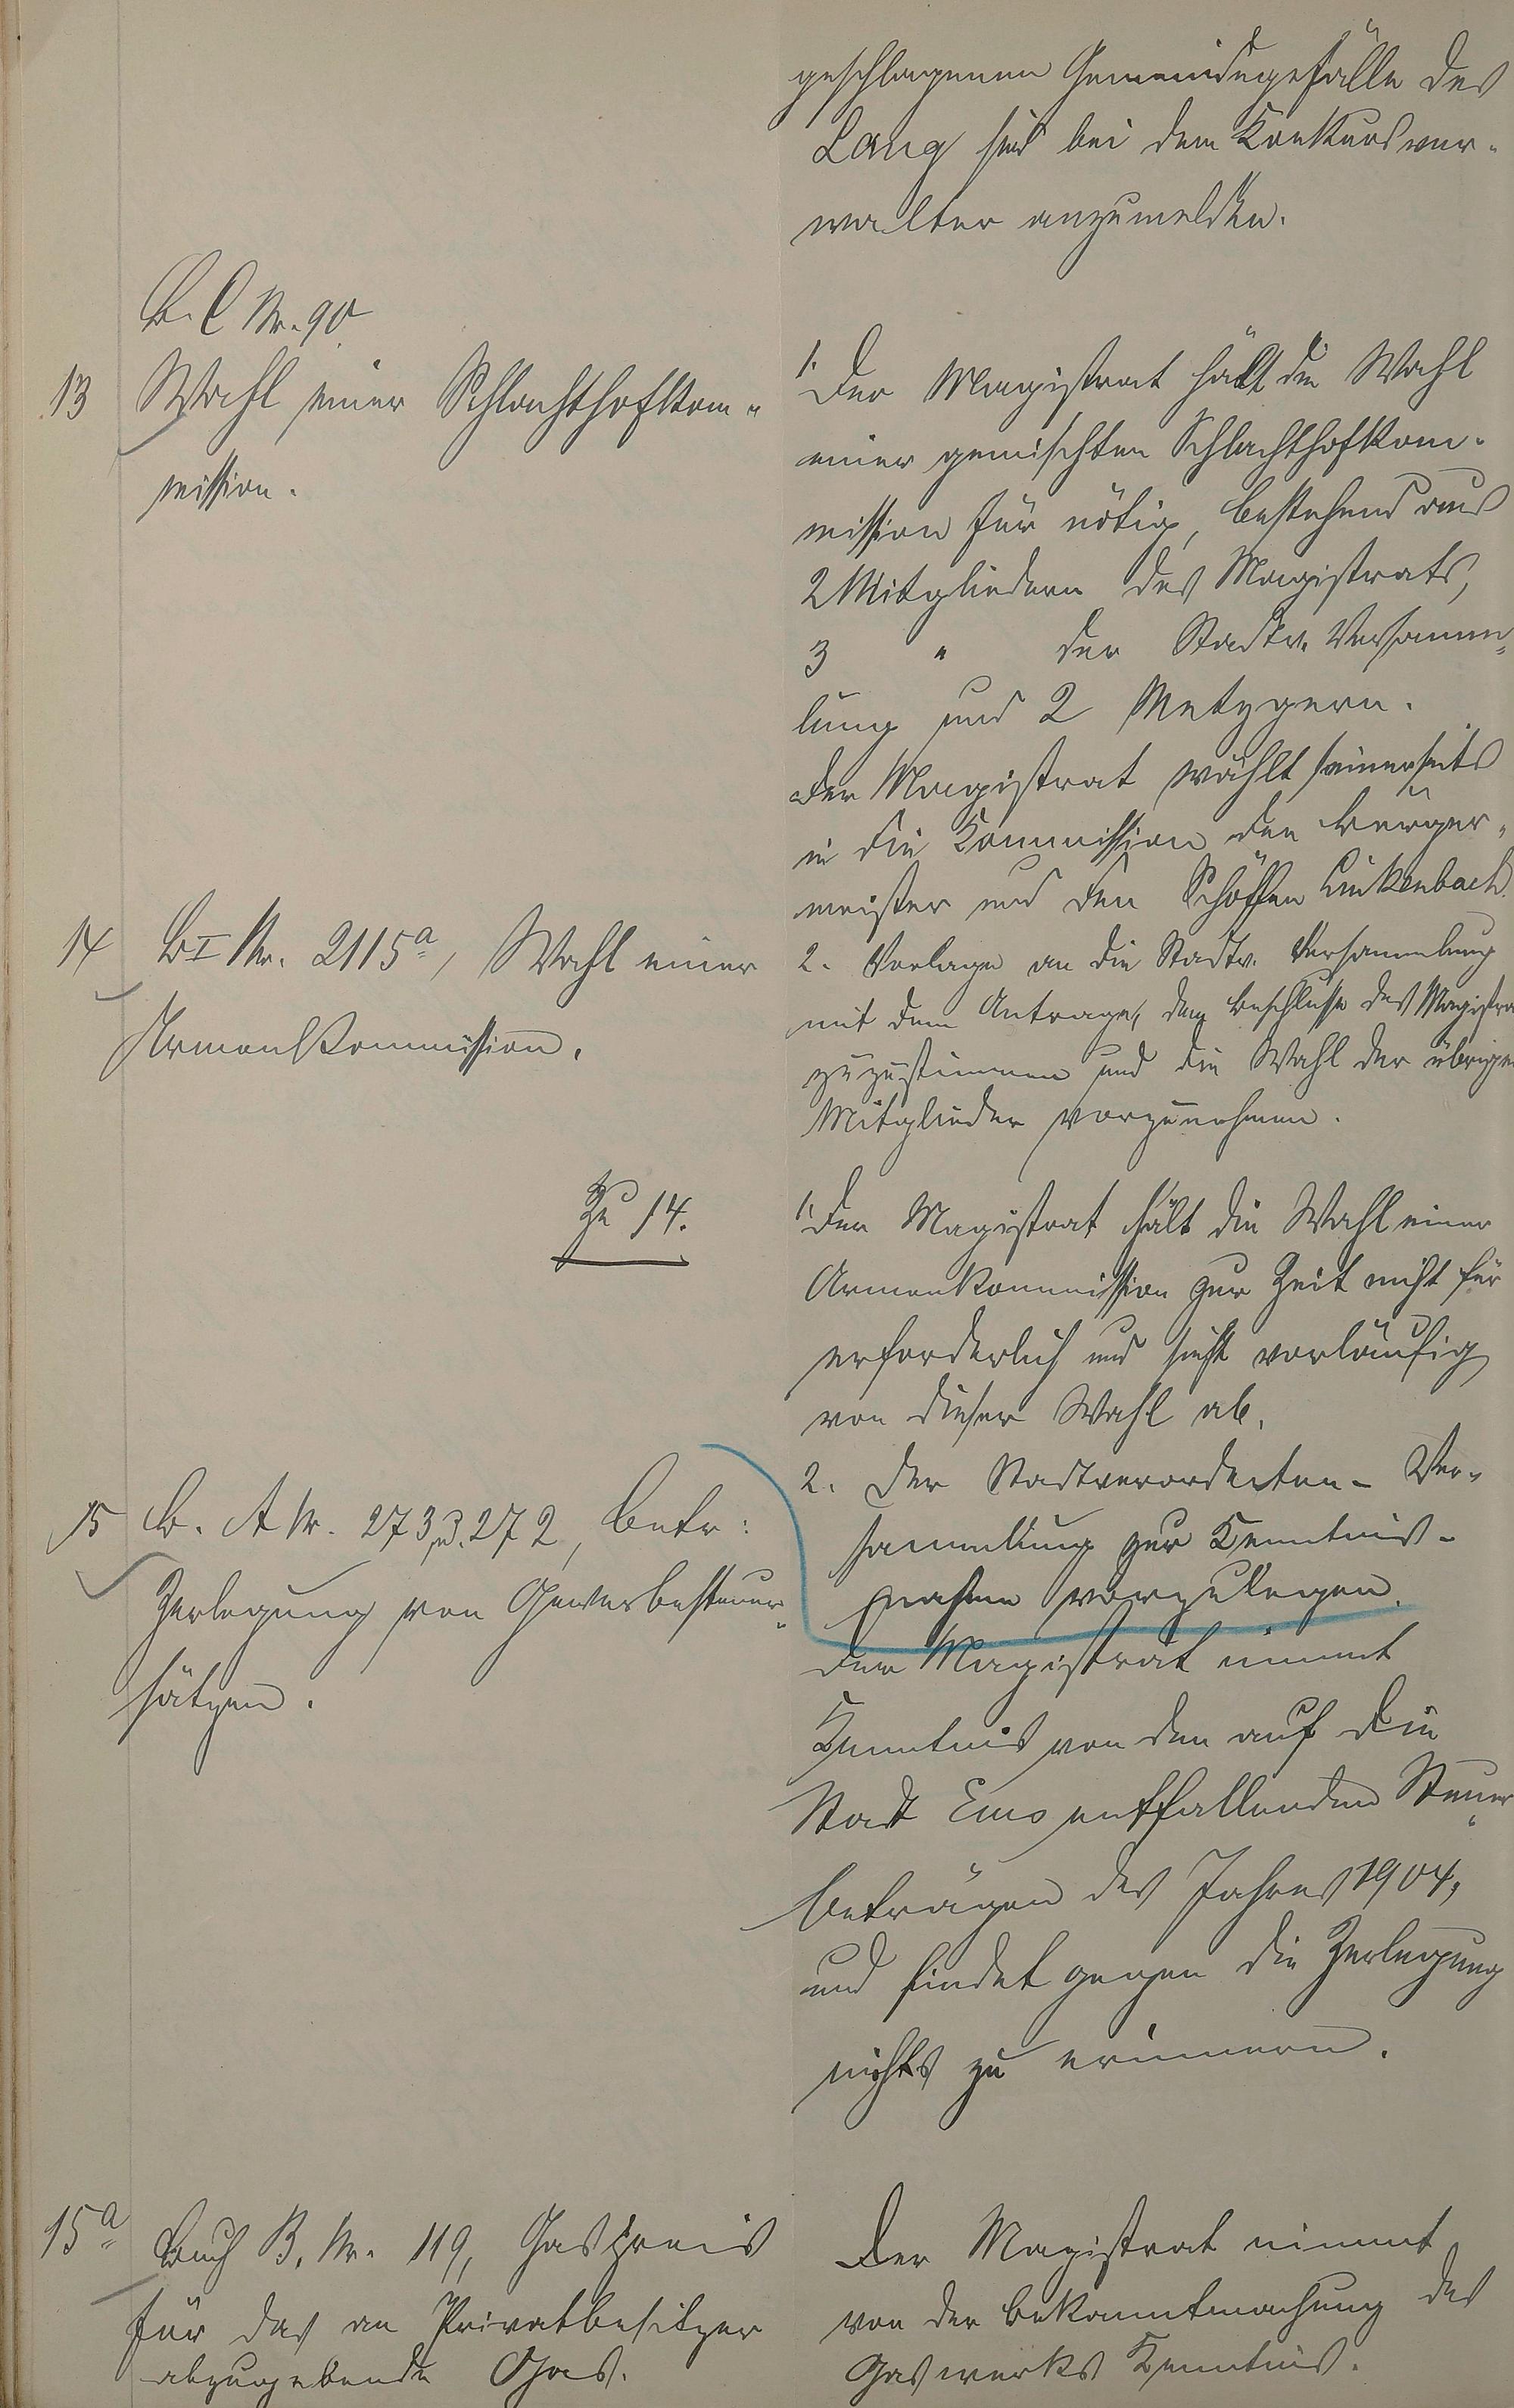 geschlagenen Gemeindegefälle des
Lang sind bei dem Konkursver-
walter anzumelden.
B. C Nr. 90
13 Wahl einer Schlachthofkom-
mission.
1. Der Magistrat hält die Wahl
einer gemischten Schlachthofkom-
mission für nötig, bestehend aus
2 Mitgliedern des Magistrats,
3 " der Stadtv. Versamm-
lung und 2 Metzgern.
Der Magistrat wählt seinerseits
in die Kommission den Bürger-
meister und den Schöffen Linkenbach.
2. Vorlage an die Stadtv. Versammlung
mit dem Antrage, dem Beschlusse des Magistra
zuzustimmen und die Wahl der übrigen
Mitglieder vorzunehmen.
14 B I Nr. 2115a, Wahl einer
Armenkommission.
Zu 14.
1. Der Magistrat hält die Wahl einer
Armenkommission zur Zeit nicht für
erforderlich und sieht vorläufig
von dieser Wahl ab.
2. Der Stadtverordneten-Ver-
sammlung zur Kenntnis-
nahme vorzulegen.
15 B. A Nr. 273 u. 272, Betr:
Zerlegung von Gewerbesteuer-
sätzen.
Der Magistrat nimmt
Kenntnis von den auf die
Stadt Ems entfallenden Steuer-
beträgen des Jahres 1904,
und findet gegen die Zerlegung
nichts zu erinnern.
15a Buch B. Nr. 119, Gaspreis
für das an Privatbesitzer
abzugebende Gas.
Der Magistrat nimmt
von der Bekanntmachung des
Gaswerks Kenntnis.